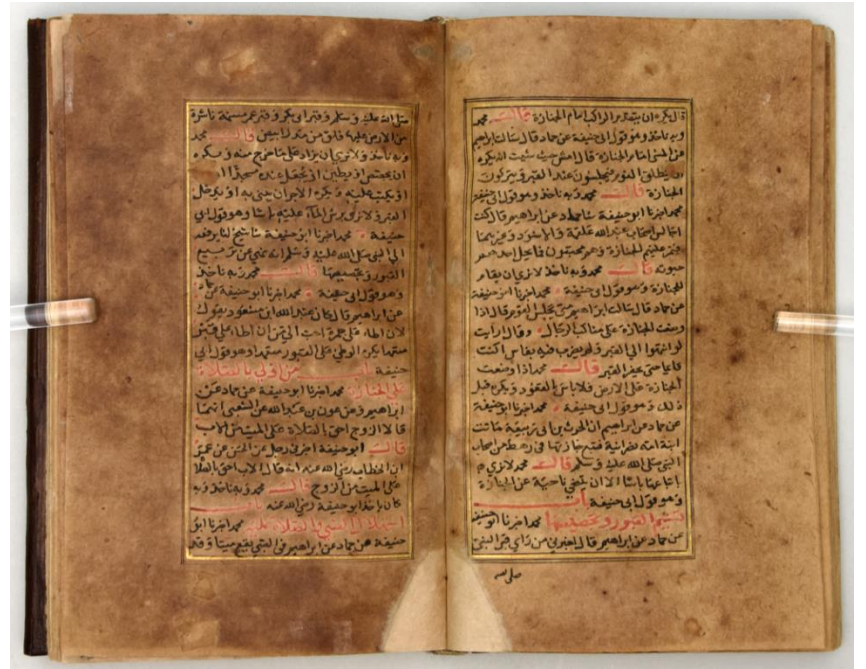 قال يكره ان يتقدم الراكب امام الجنازة قال محمد
وبه ناخذ وهو قول ابى حنيفة عن حماد قال سالت ابراهيم
عن المشى امام الجنازة قال امش حيث شئت انما يكره
ان ينطلق القوم فيجلسون عند القبر ويتركون
الجنازة قال محمد وبه ناخذ وهو قول ابى حنيفة
محمد اخبرنا ابو حنيفة ثنا حماد عن ابراهيم قال كنت
اجالس اصحاب عبد الله علقمة والاسود وغيرهما
فتمر عليهم الجنازة وهم محتبون فما يحل احدهم
حبوته قال محمد وبه ناخذ لا نرى ان يقام
للجنازة وهو قول ابى حنيفة محمد اخبرنا ابو حنيفة
عن حماد قال سالت ابراهيم متى يجلس القوم قال اذا
وضعت الجنازة على مناكب الرجال وقال ارايت
لو انتهوا الى القبر ولم يضرب فيه بفاس اكنت
قائما حتى يحفر القبر قال محمد اذا وضعت
الجنازة على الارض فلا باس بالقعود ويكره قبل
ذلك وهو قول ابى حنيفة محمد اخبرنا ابو حنيفة
عن حماد عن ابراهيم ان الحرث بن ابى ربيعة ماتت
ابنة امه نصرانية فتبع جنازتها فى رهط من اصحاب
النبى صلى الله عليه وسلم قال محمد لا نرى
باتباعها باسا الا ان يتنحى ناحية عن الجنازة
وهو قول ابى حنيفة باب
تسنيم القبور وتجصيصها محمد اخبرنا ابو حنيفة
عن حماد عن ابراهيم قال اخبرنى من راى قبر النبى
صلى الله
صلى الله عليه وسلم وقبر ابى بكر وقبر عمر مسنمة ناشزة
من الارض عليها فلق من مدر ابيض قال محمد
وبه ناخذ ولا نرى ان يزاد على ما خرج منه ويكره
ان يجصص او يطين او يجعل عنده مسجدا او
او يكتب عليه ويكره الاجر ان يبنى به او يدخل
القبر ولا نرى برش الماء عليه باسا وهو قول ابى
حنيفة محمد اخبرنا ابو حنيفة ثنا شيخ لنا يرفعه
الى النبى صلى الله عليه وسلم انه نهى عن تربيع
القبور وتجصيصها قال محمد وبه ناخذ
وهو قول ابى حنيفة محمد اخبرنا ابو حنيفة عن حماد
عن ابراهيم قال كان عبد الله ابن مسعود يقول
لان اطا على جمرة احب الى من ان اطا على قبر
متعمدا يكره الوطى على القبور متعمدا وهو قول ابى
حنيفة باب من اولى بالصلاة
على الجنازة محمد اخبرنا ابو حنيفة عن حماد عن
ابراهيم وعن عون بن عبد الله عن الشعبى انهما
قالا الزوج احق بالصلاة على الميت من الاب
قال ابو حنيفة اخبرنى رجل عن الحسن عن عمر
ابن الخطاب رضى الله عنه انه قال الاب احق بالصلاة
على الميت من الزوج قال محمد وبه ناخذ وبه
كان ياخذ ابو حنيفة رضى الله عنه باب
استهلال الصبى والصلاة عليه محمد اخبرنا ابو
حنيفة عن حماد عن ابراهيم فى الصبى يقع ميتا وقد